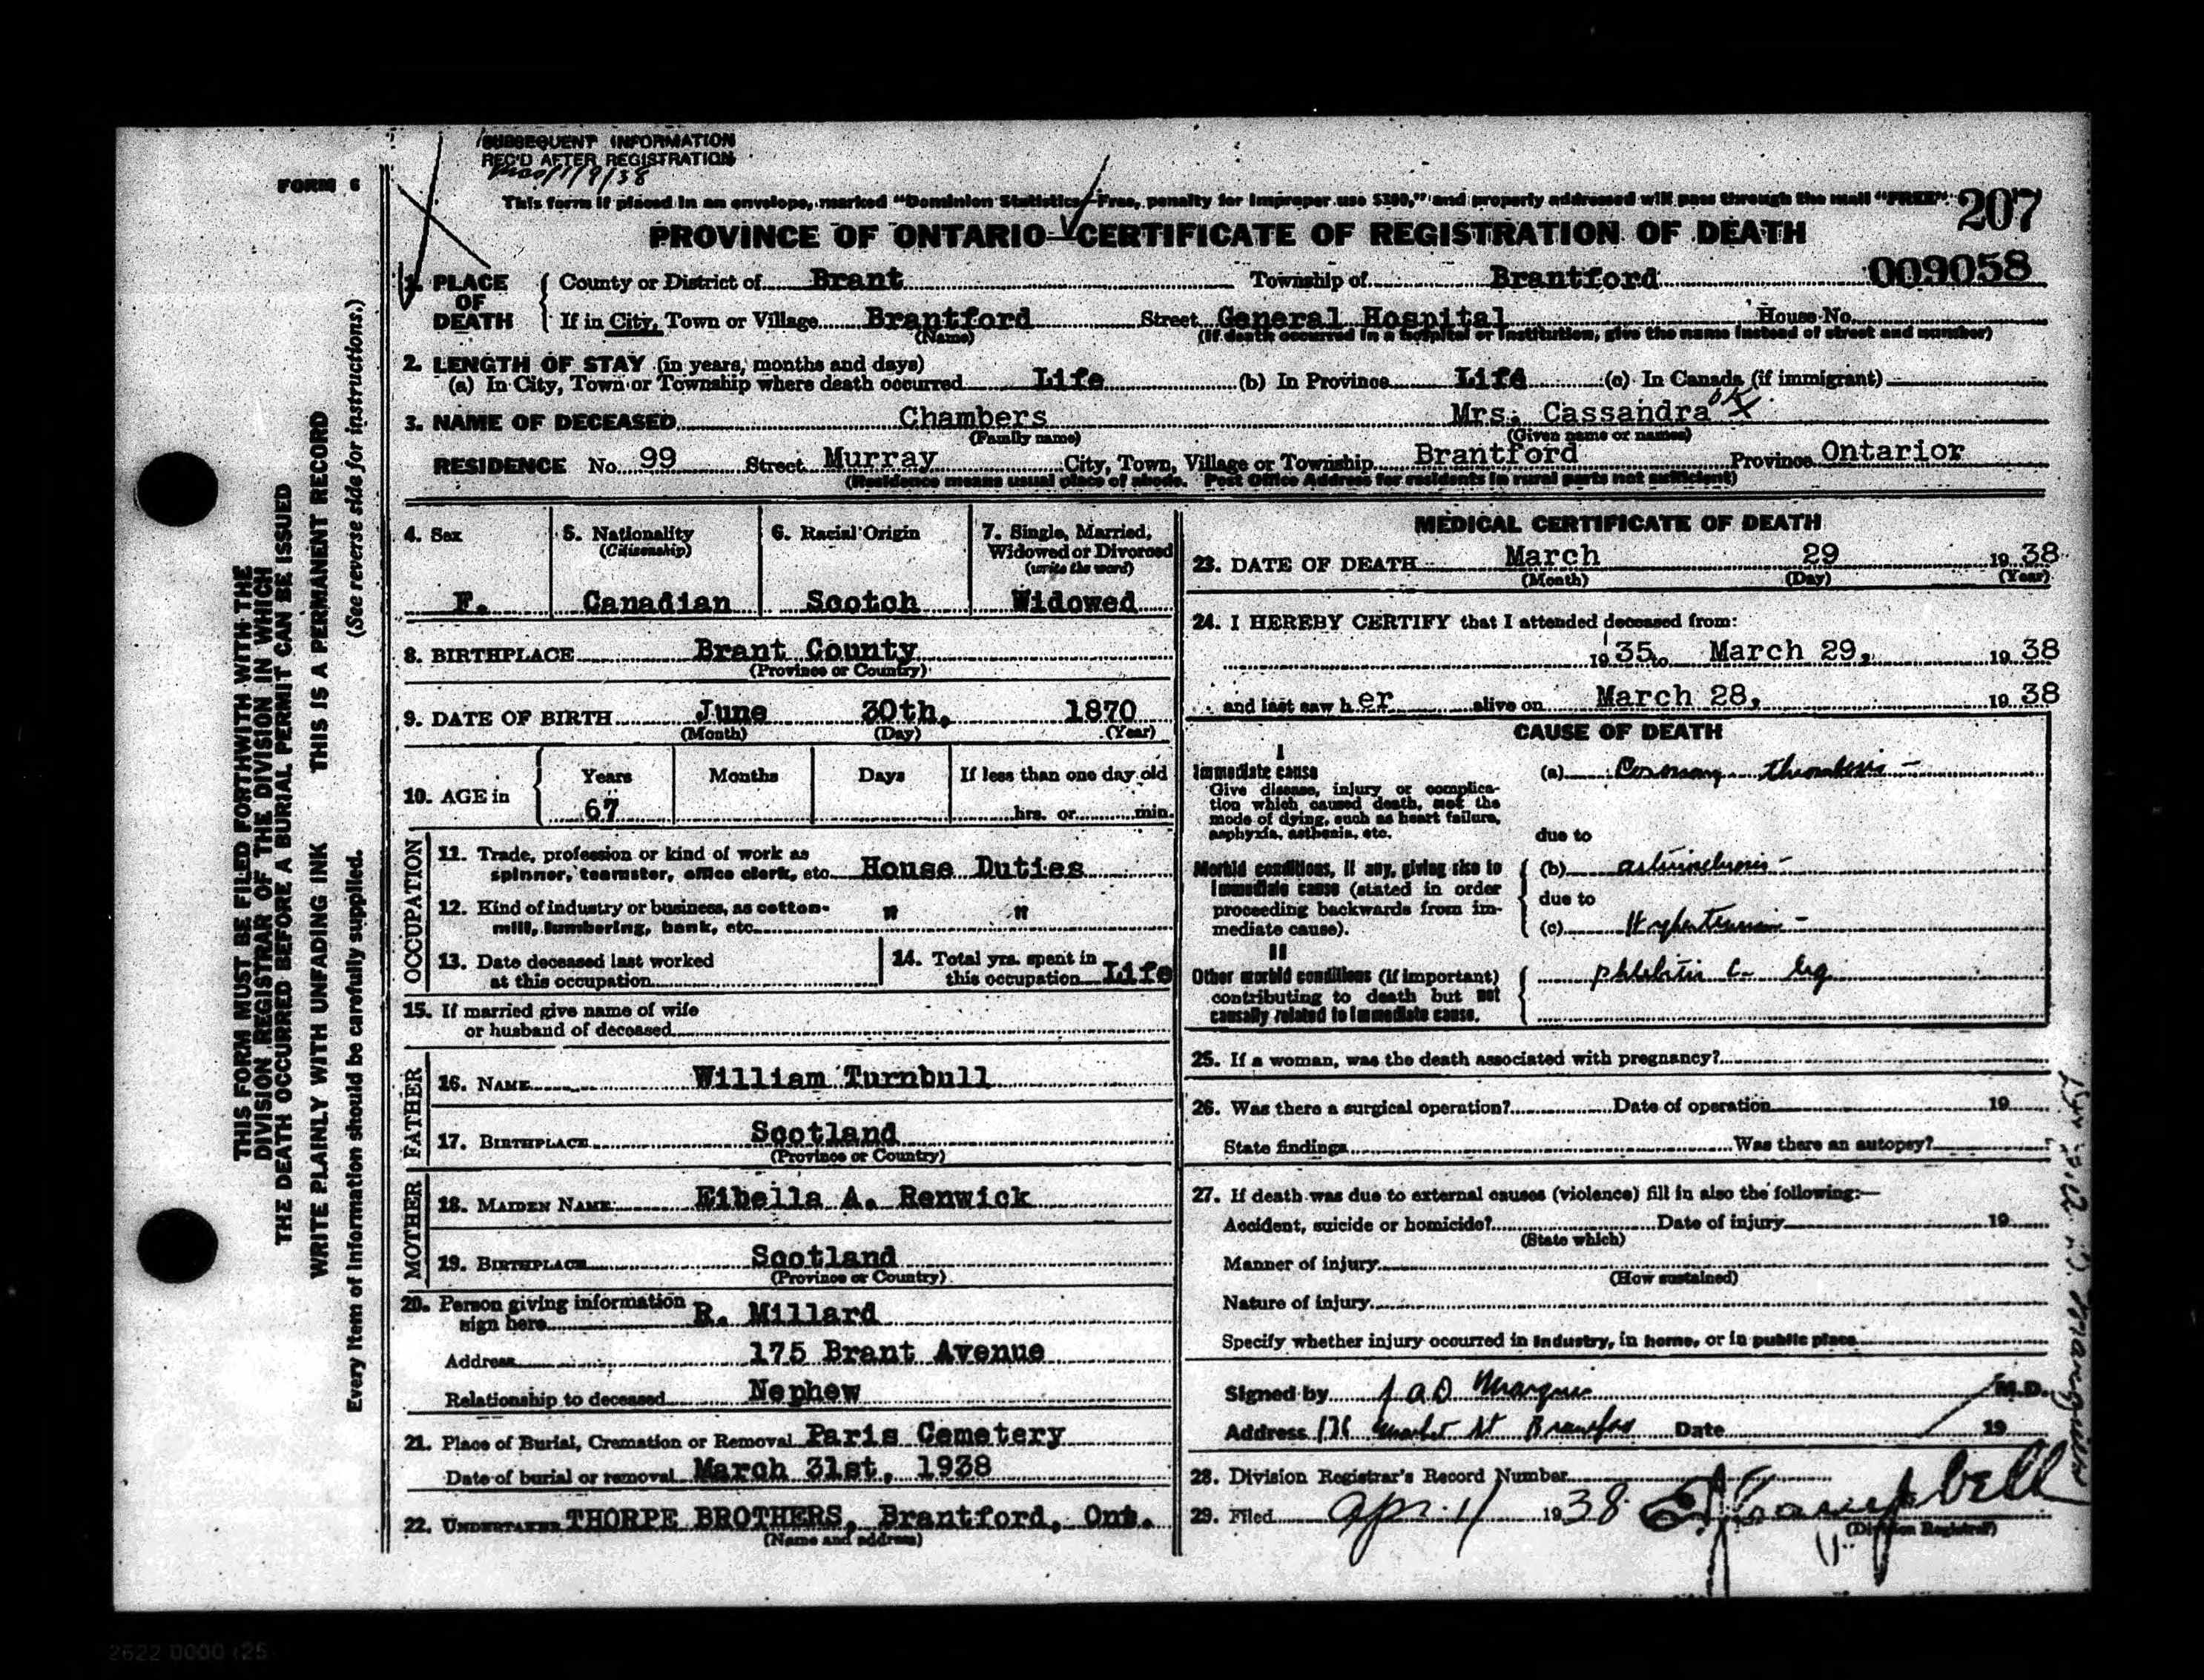 SUBSEQUENT INFORMATION
REC'D AFTER REGISTRATION
FORM 6
This form if placed in an envelope, marked "Dominion Statistics—Free, penalty for improper use $300," and properly addressed will pass through the mail "FREE".
207
PROVINCE OF ONTARIO—CERTIFICATE OF REGISTRATION OF DEATH
009058
1. PLACE OF DEATH
County or District of Brant Township of Brantford
If in City, Town or Village Brantford Street General Hospital House No.
(Name) (If death occurred in a hospital or institution, give the name instead of street and number)
2. LENGTH OF STAY (in years, months and days)
(a) In City, Town or Township where death occurred Life (b) In Province Life (c) In Canada (if immigrant)
3. NAME OF DECEASED Chambers Mrs. Cassandra OK
(Family name) (Given name or names)
RESIDENCE No. 99 Street Murray City, Town, Village or Township Brantford Province Ontarior
(Residence means usual place of abode. Post Office Address for residents in rural parts not sufficient)
4. Sex
F.
5. Nationality
(Citizenship)
Canadian
6. Racial Origin
Scotch
7. Single, Married,
Widowed or Divorced
(write the word)
Widowed
8. BIRTHPLACE Brant County
(Province or Country)
9. DATE OF BIRTH June 30th, 1870
(Month) (Day) (Year)
10. AGE in Years Months Days If less than one day old
67 hrs. or min.
OCCUPATION
11. Trade, profession or kind of work as
spinner, teamster, office clerk, etc. House Duties
12. Kind of industry or business, as cotton-
mill, lumbering, bank, etc. " "
13. Date deceased last worked
at this occupation
14. Total yrs. spent in
this occupation Life
15. If married give name of wife
or husband of deceased
FATHER
16. NAME William Turnbull
17. BIRTHPLACE Scotland
(Province or Country)
MOTHER
18. MAIDEN NAME Eibella A. Renwick
19. BIRTHPLACE Scotland
(Province or Country)
20. Person giving information
sign here R. Millard
Address 175 Brant Avenue
Relationship to deceased Nephew
21. Place of Burial, Cremation or Removal Paris Cemetery
Date of burial or removal March 31st, 1938
22. UNDERTAKER THORPE BROTHERS, Brantford, Ont.
(Name and address)
MEDICAL CERTIFICATE OF DEATH
23. DATE OF DEATH March 29 1938
(Month) (Day) (Year)
24. I HEREBY CERTIFY that I attended deceased from:
1935 to March 29, 1938
and last saw her alive on March 28, 1938
CAUSE OF DEATH
I
Immediate cause (a) Coronary thrombosis -
Give disease, injury or complica-
tion which caused death, not the
mode of dying, such as heart failure,
asphyxia, asthenia, etc.
due to
Morbid conditions, if any, giving rise to
immediate cause (stated in order
proceeding backwards from im-
mediate cause).
(b)
due to
(c) Hypertension -
II
Other morbid conditions (if important)
contributing to death but not
causally related to immediate cause.
phlebitis L. leg
25. If a woman, was the death associated with pregnancy?
26. Was there a surgical operation? Date of operation 19
State findings Was there an autopsy?
27. If death was due to external causes (violence) fill in also the following:—
Accident, suicide or homicide? Date of injury 19
(State which)
Manner of injury
(How sustained)
Nature of injury
Specify whether injury occurred in industry, in home, or in public place
Signed by M.D.
Address Market St Date 19
28. Division Registrar's Record Number
29. Filed Apr 1 1938 Campbell
(Division Registrar)
THIS FORM MUST BE FILED FORTHWITH WITH THE
DIVISION REGISTRAR OF THE DIVISION IN WHICH
THE DEATH OCCURRED BEFORE A BURIAL PERMIT CAN BE ISSUED
WRITE PLAINLY WITH UNFADING INK THIS IS A PERMANENT RECORD
Every item of information should be carefully supplied. (See reverse side for instructions.)